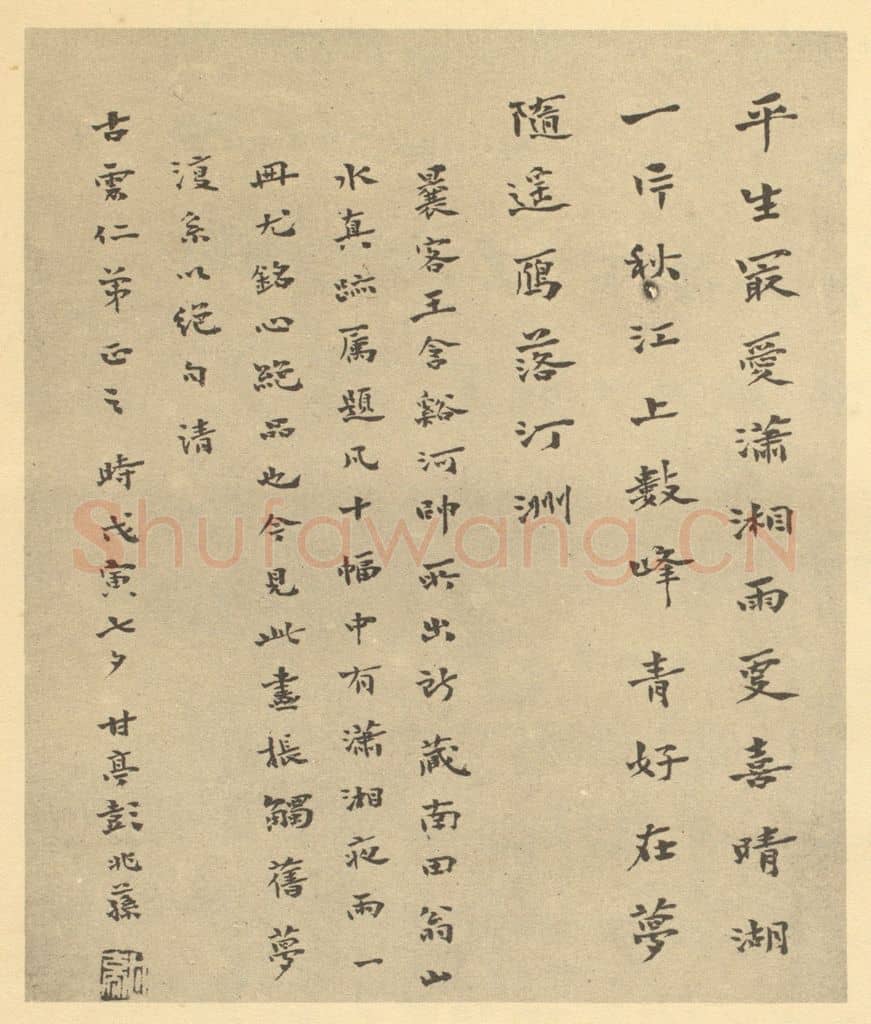 平生冣愛瀟湘雨更喜晴湖
一片秋江上數峰青好在夢
隨遥鴈落汀洲
曩客王含谿河帥所出所藏南田翁山
水真蹟属題凡十幅中有瀟湘夜雨一
冊尤銘心絕品也今見此畫棖觸舊夢
系以絕句清
古雲仁弟正之 時戊寅七夕 甘亭彭兆蓀
Shufawang.CN